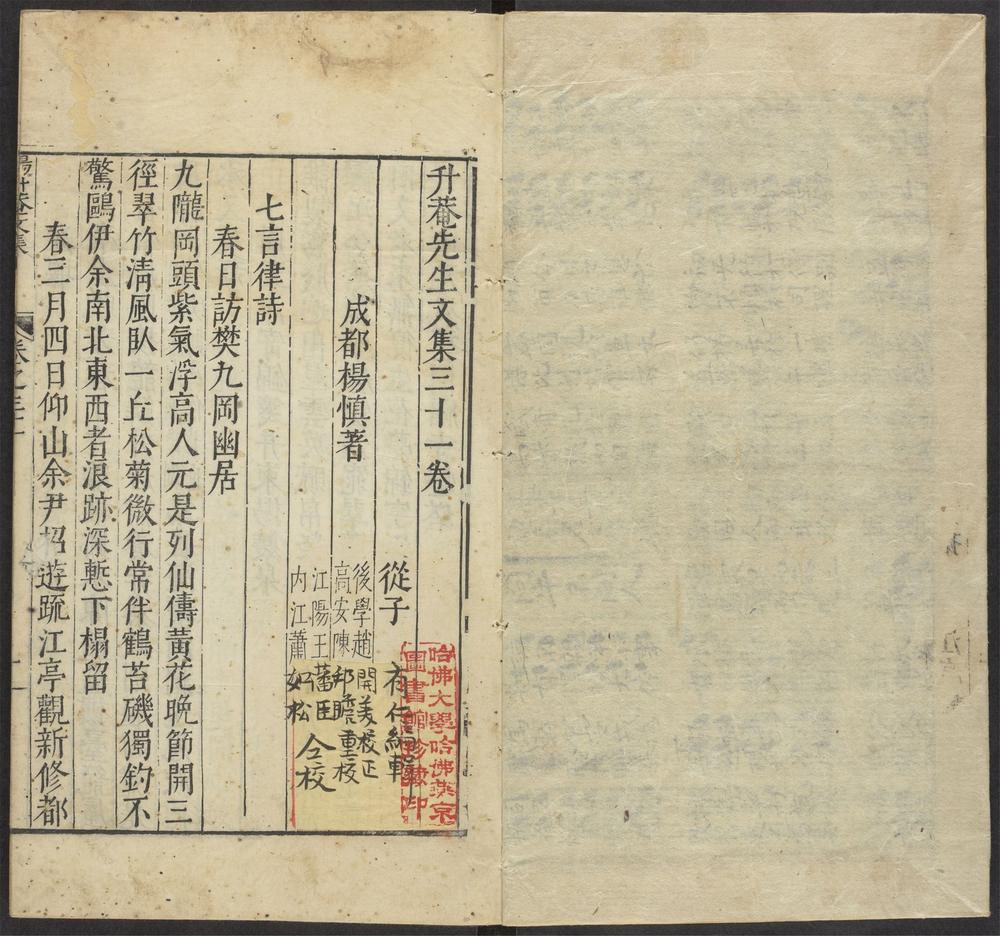 升菴先生文集三十一卷
成都楊慎著
從子有仁編輯
後學趙開美校正
高安陳邦瞻重校
江陽王藩臣
内江蕭如松仝校
七言律詩
春日訪樊九岡幽居
九隴岡頭紫氣浮高人元是列仙儔黃花晚節開三
徑翠竹清風臥一丘松菊微行常伴鶴苔磯獨釣不
驚鷗伊余南北東西者浪跡深慙下榻留
春三月四日仰山余尹招遊疏江亭觀新修都
哈佛大學哈佛燕京
圖書館珍藏印